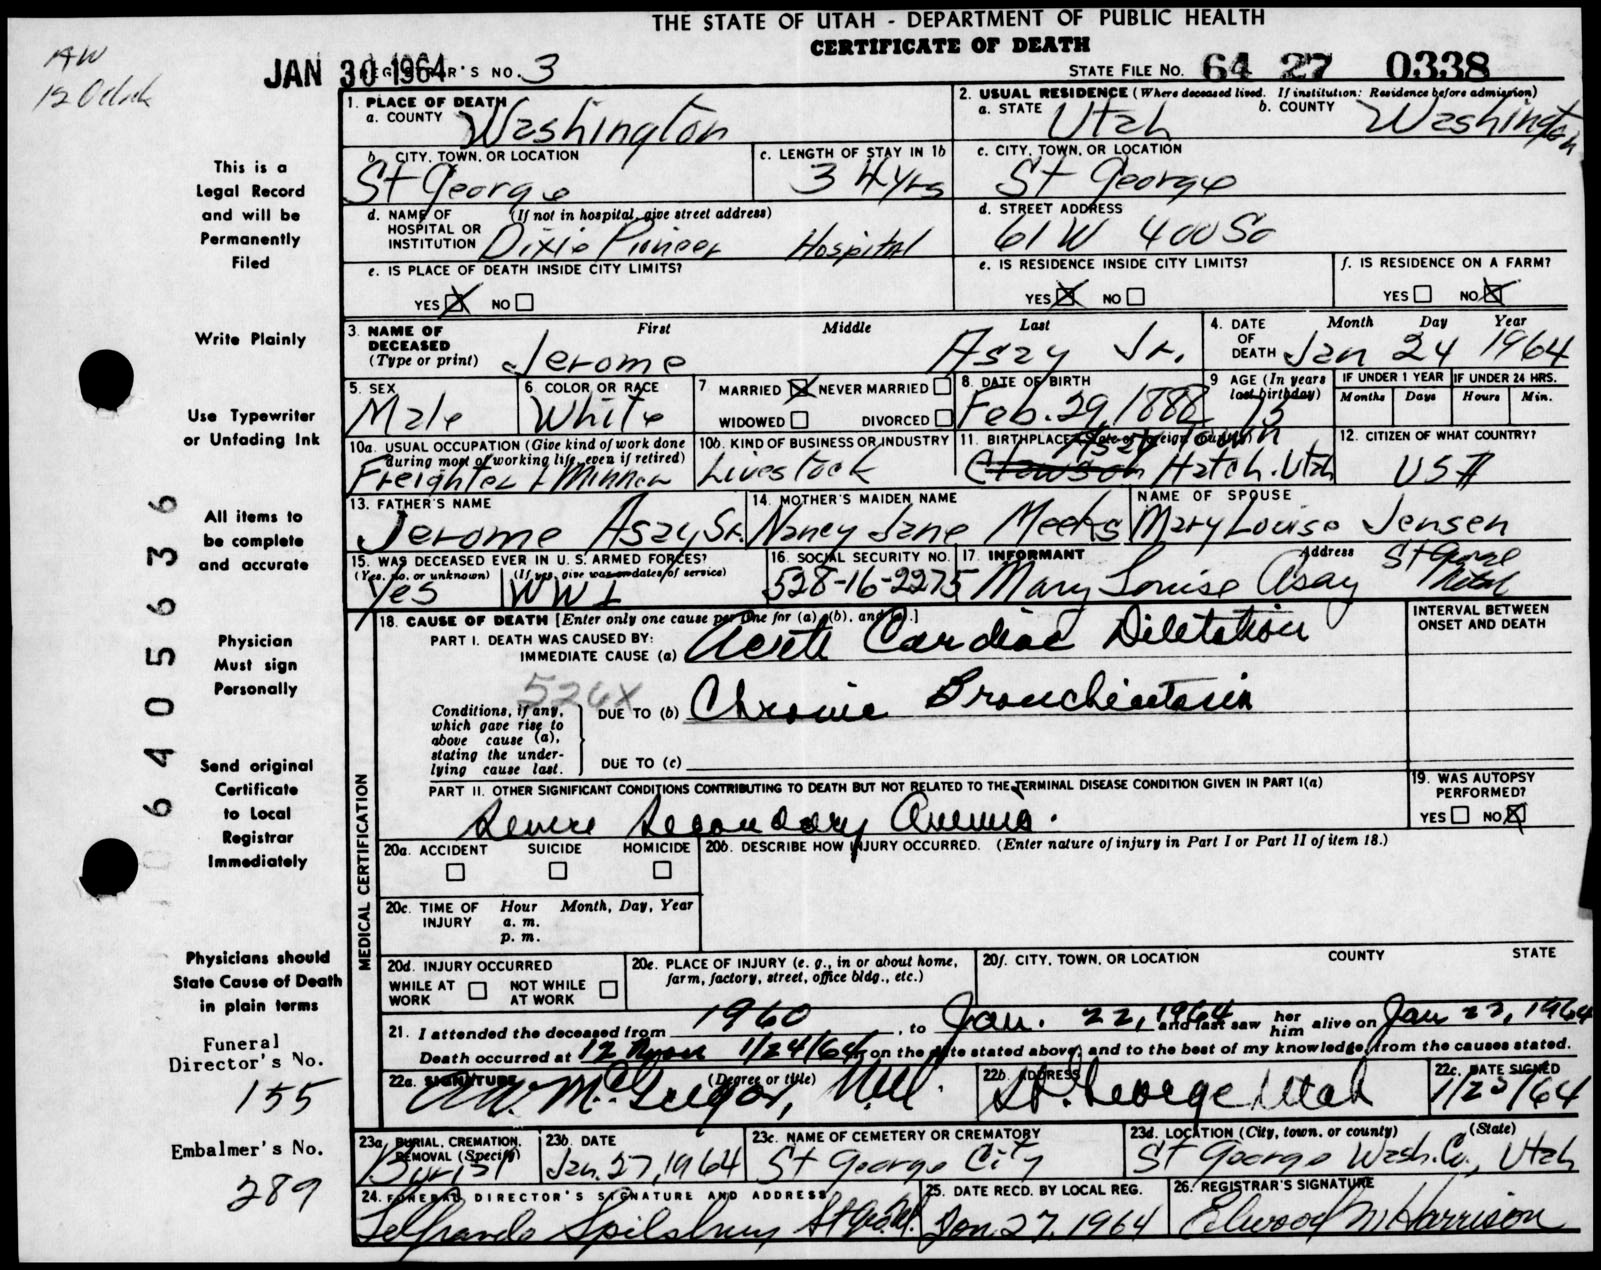 THE STATE OF UTAH - DEPARTMENT OF PUBLIC HEALTH
CERTIFICATE OF DEATH
AW
12 Oclock
JAN 30 1964 REGISTRAR'S NO. 3
STATE FILE NO. 64 27 0338
1. PLACE OF DEATH
a. COUNTY Washington
2. USUAL RESIDENCE (Where deceased lived. If institution: Residence before admission)
a. STATE Utah b. COUNTY Washington
b. CITY, TOWN, OR LOCATION
St George
c. LENGTH OF STAY IN 1b
34 yrs
c. CITY, TOWN, OR LOCATION
St George
d. NAME OF HOSPITAL OR INSTITUTION (If not in hospital, give street address)
Dixie Pioneer Hospital
d. STREET ADDRESS
61 W 400 So
e. IS PLACE OF DEATH INSIDE CITY LIMITS?
YES X NO
e. IS RESIDENCE INSIDE CITY LIMITS?
YES X NO
f. IS RESIDENCE ON A FARM?
YES NO X
3. NAME OF DECEASED (Type or print) First Middle Last
Jerome Asay Jr.
4. DATE OF DEATH Month Day Year
Jan 24 1964
5. SEX
Male
6. COLOR OR RACE
White
7. MARRIED X NEVER MARRIED
WIDOWED DIVORCED
8. DATE OF BIRTH
Feb. 29, 1888
9 AGE (In years last birthday)
75
IF UNDER 1 YEAR Months Days
IF UNDER 24 HRS. Hours Min.
10a. USUAL OCCUPATION (Give kind of work done during most of working life, even if retired)
Freighter + Minner
10b. KIND OF BUSINESS OR INDUSTRY
Livestock
11. BIRTHPLACE (State or foreign country)
Asay Town
Hatch. Utah
12. CITIZEN OF WHAT COUNTRY?
USA
13. FATHER'S NAME
Jerome Asay Sr.
14. MOTHER'S MAIDEN NAME
Nancy Jane Meeks
NAME OF SPOUSE
Mary Louise Jensen
15. WAS DECEASED EVER IN U. S. ARMED FORCES?
(Yes, no, or unknown) (If yes, give war or dates of service)
Yes WW I
16. SOCIAL SECURITY NO.
528-16-2275
17. INFORMANT Address
Mary Louise Asay St George Utah
18. CAUSE OF DEATH [Enter only one cause per line for (a), (b), and (c).]
INTERVAL BETWEEN ONSET AND DEATH
PART I. DEATH WAS CAUSED BY:
IMMEDIATE CAUSE (a) Acute Cardiac Diletation
526X
Conditions, if any, which gave rise to above cause (a), stating the underlying cause last.
DUE TO (b) Chronic
DUE TO (c)
PART II. OTHER SIGNIFICANT CONDITIONS CONTRIBUTING TO DEATH BUT NOT RELATED TO THE TERMINAL DISEASE CONDITION GIVEN IN PART I(a)
Severe Secondary Anemia.
19. WAS AUTOPSY PERFORMED?
YES NO X
MEDICAL CERTIFICATION
20a. ACCIDENT SUICIDE HOMICIDE
20b. DESCRIBE HOW INJURY OCCURRED. (Enter nature of injury in Part I or Part II of item 18.)
20c. TIME OF INJURY Hour Month, Day, Year
a. m.
p. m.
20d. INJURY OCCURRED
WHILE AT WORK NOT WHILE AT WORK
20e. PLACE OF INJURY (e. g., in or about home, farm, factory, street, office bldg., etc.)
20f. CITY, TOWN, OR LOCATION COUNTY STATE
21. I attended the deceased from 1960, to Jan. 22, 1964 and last saw her him alive on Jan 22, 1964
Death occurred at 12 Noon 1/24/64, on the date stated above; and to the best of my knowledge, from the causes stated.
22a. SIGNATURE (Degree or title)
McGregor, M.D.
22b. ADDRESS
St. George Utah
22c. DATE SIGNED
23a. BURIAL, CREMATION, REMOVAL (Specify)
Burial
23b. DATE
Jan. 27, 1964
23c. NAME OF CEMETERY OR CREMATORY
St George City
23d. LOCATION (City, town, or county) (State)
St George Wash. Co., Utah
24. FUNERAL DIRECTOR'S SIGNATURE AND ADDRESS
Spilsbury
25. DATE RECD. BY LOCAL REG.
Jan. 27, 1964
26. REGISTRAR'S SIGNATURE
Elwood M Harrison
This is a
Legal Record
and will be
Permanently
Filed
Write Plainly
Use Typewriter
or Unfading Ink
All items to
be complete
and accurate
Physician
Must sign
Personally
Send original
Certificate
to Local
Registrar
Immediately
Physicians should
State Cause of Death
in plain terms
Funeral
Director's No.
155
Embalmer's No.
289
6405636